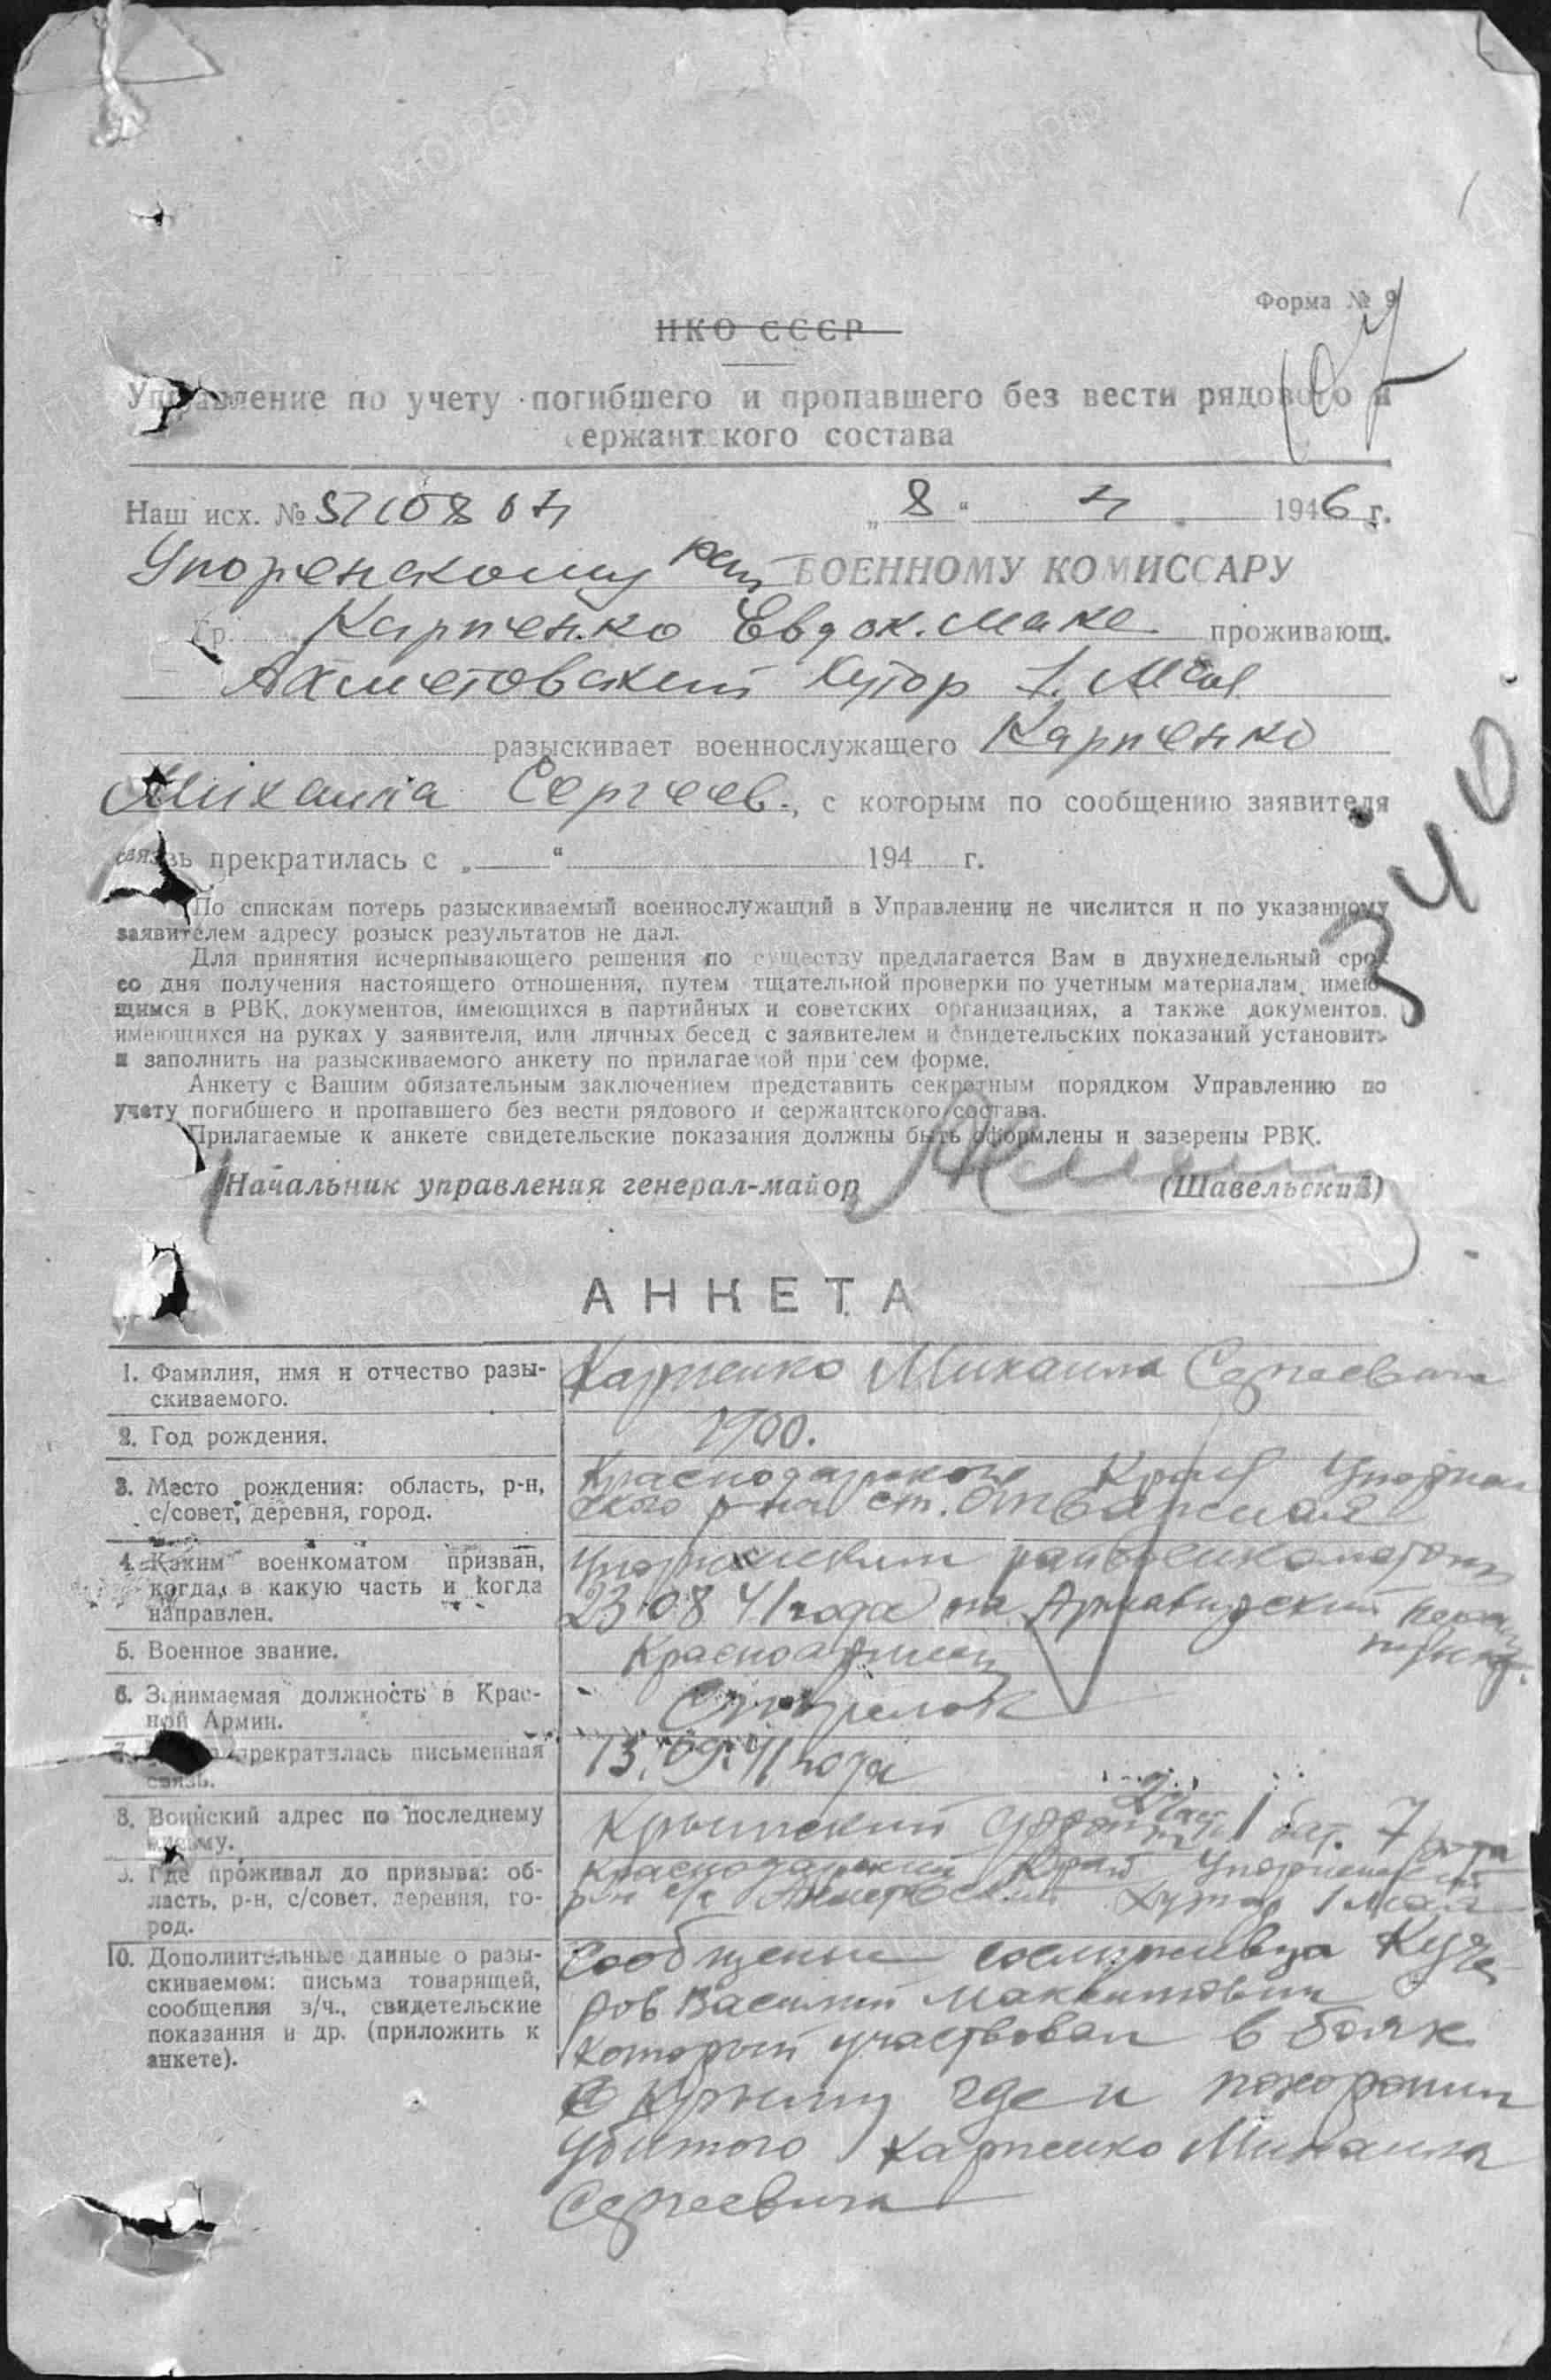 Форма № 9
107
НКО СССР
Управление по учету погибшего и пропавшего без вести рядового и
сержантского состава
Наш исх. № „ 8 “ 4 1946 г.
Упорненскому рай ВОЕННОМУ КОМИССАРУ
Гр. Карпенко Евдок. Макс проживающ.
Ахметовский Хутор 1. Мая
разыскивает военнослужащего Карпенко
Михаила Сергеев., с которым по сообщению заявителя
связь прекратилась с „ “ 194 г.
340
По спискам потерь разыскиваемый военнослужащий в Управлении не числится и по указанному
заявителем адресу розыск результатов не дал.
Для принятия исчерпывающего решения по существу предлагается Вам в двухнедельный срок
со дня получения настоящего отношения, путем тщательной проверки по учетным материалам, имею-
щимся в РВК, документов, имеющихся в партийных и советских организациях, а также документов,
имеющихся на руках у заявителя, или личных бесед с заявителем и свидетельских показаний установить
и заполнить на разыскиваемого анкету по прилагаемой при сем форме.
Анкету с Вашим обязательным заключением представить секретным порядком Управлению по
учету погибшего и пропавшего без вести рядового и сержантского состава.
Прилагаемые к анкете свидетельские показания должны быть оформлены и заверены РВК.
Начальник управления генерал-майор (Шавельский)
АНКЕТА
1. Фамилия, имя и отчество разы-
скиваемого.
Карпенко Михаила Сергеевича
2. Год рождения.
1900.
3. Место рождения: область, р-н,
с/совет, деревня, город.
Краснодарского Края Упорнен
ского р-на ст. Отважная
4. Каким военкоматом призван,
когда, в какую часть и когда
направлен.
Упорненским райвоенкоматом
23.08 41 года на Армавирский
5. Военное звание.
Красноармеец
6. Занимаемая должность в Крас-
ной Армии.
Стрелок
7. прекратилась письменная
связь.
13.09.41 года
8. Воинский адрес по последнему
письму.
Крымский 1 бат. 7 рота
9. Где проживал до призыва: об-
ласть, р-н, с/совет, деревня, го-
род.
Краснодарский Край Упорненский
р-н с/с Ахметовский Хутор 1 Мая
10. Дополнительные данные о разы-
скиваемом: письма товарищей,
сообщения в/ч., свидетельские
показания и др. (приложить к
анкете).
Сообщение сослуживца Куче-
ров Василий Максимович
который участвовал в боях
в Крыму где и похоронил
убитого Карпенко Михаила
Сергеевича